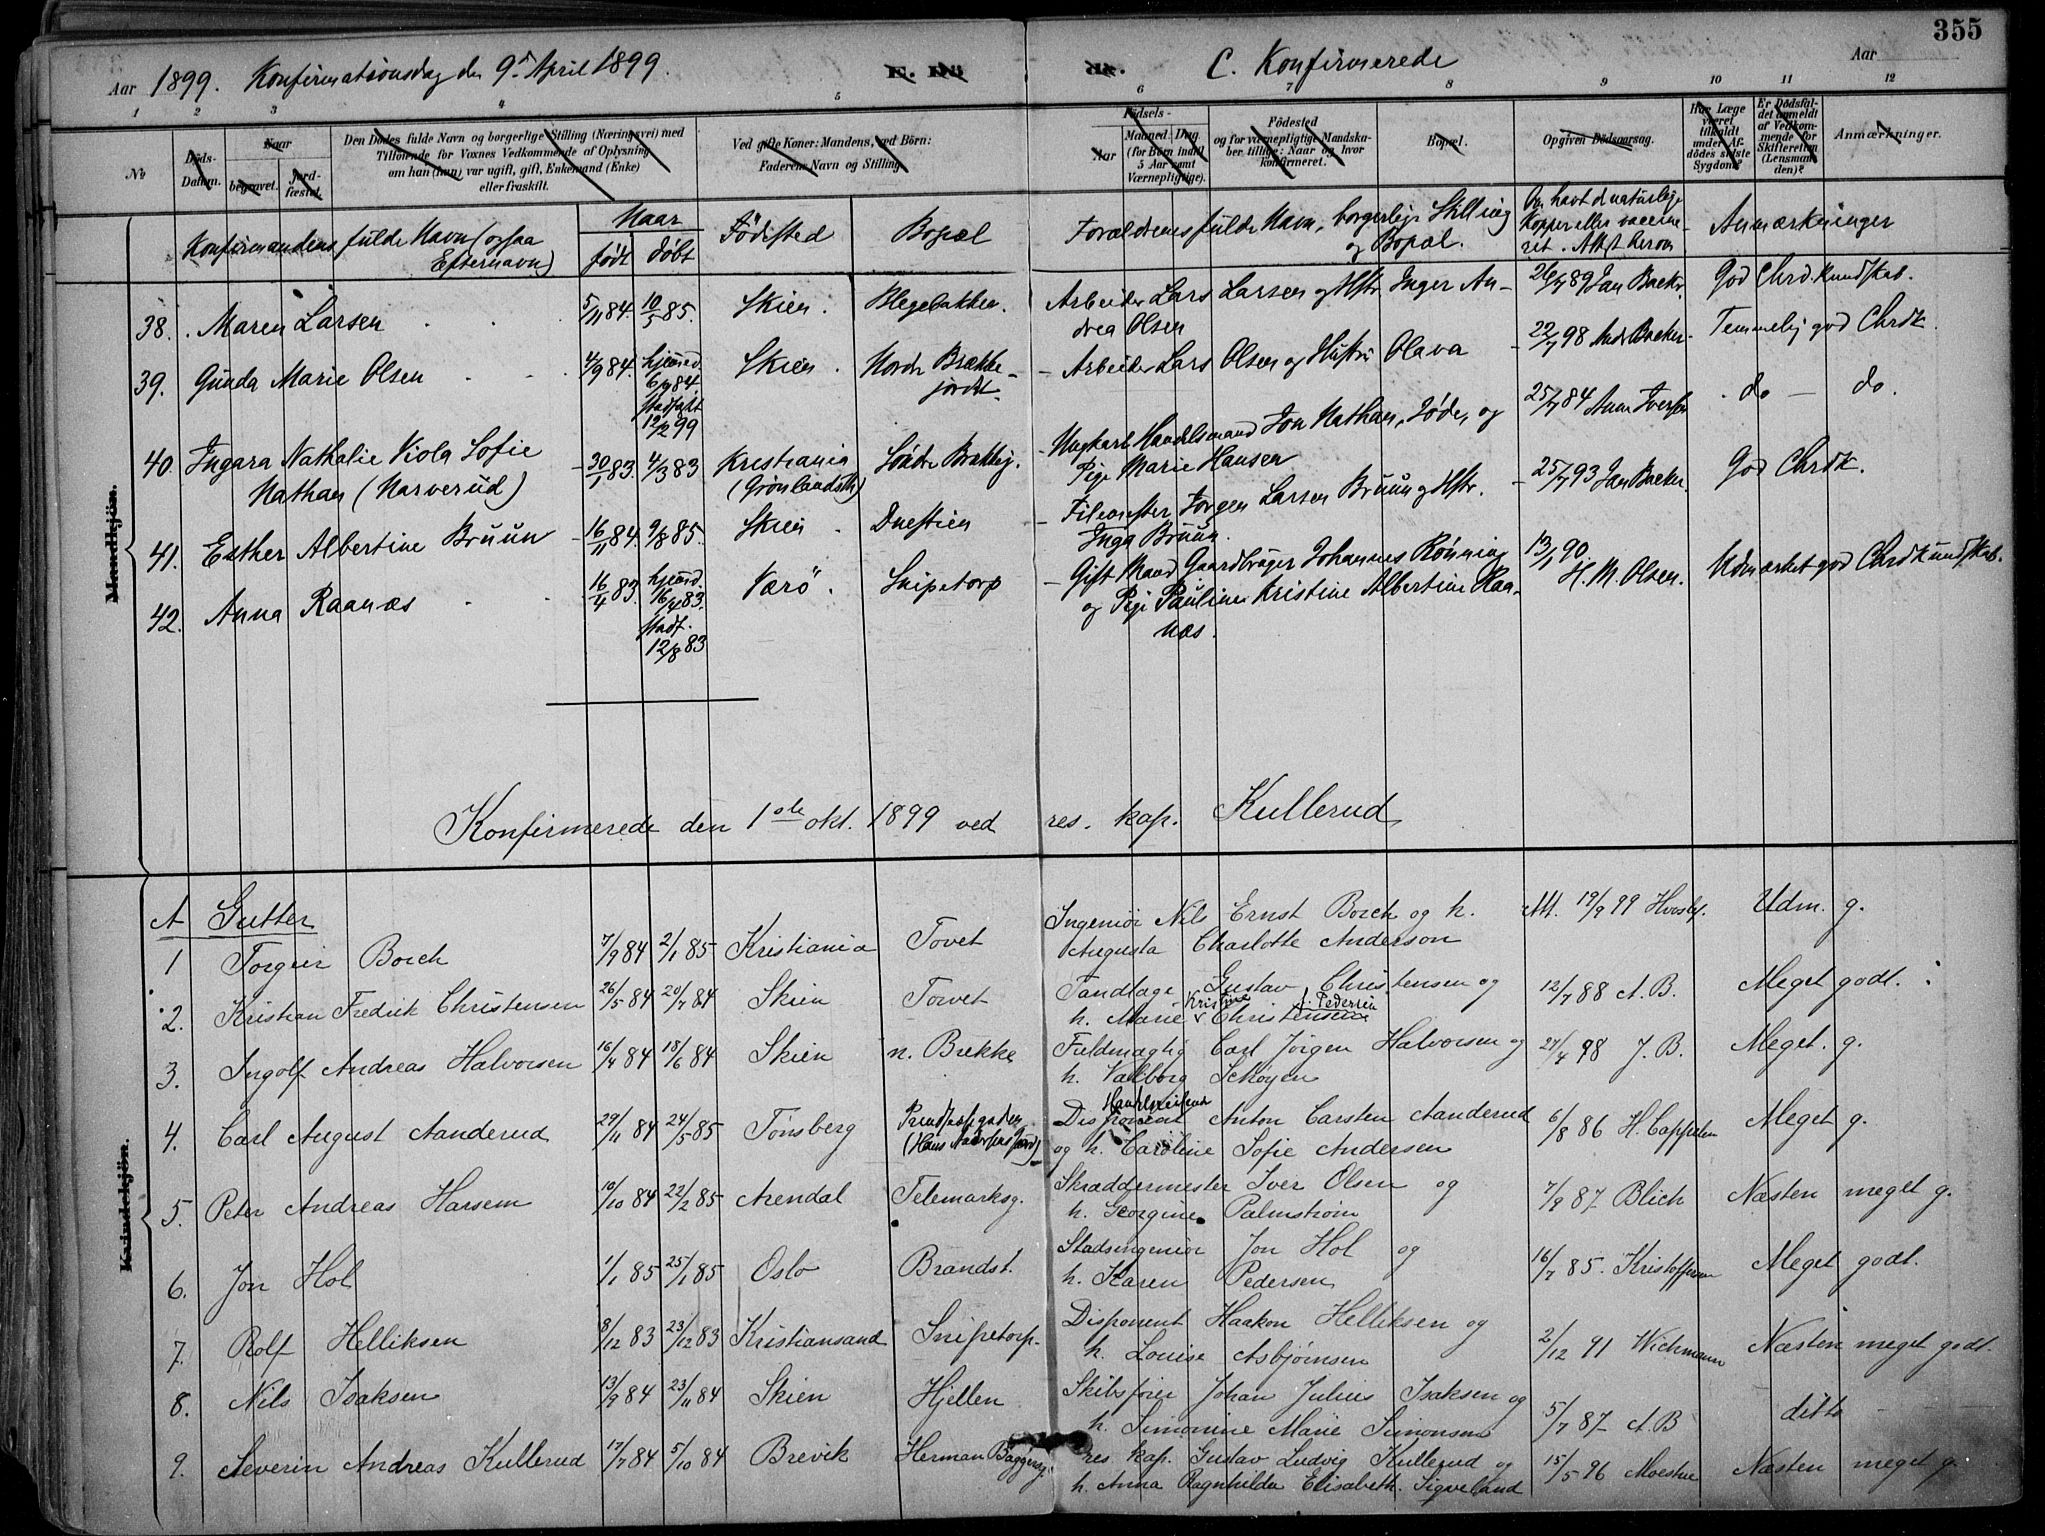 355
Aar 1899. Konfirmationsdag den 9de April 1899.
E. Dö
de.
C. Konfirmerede
Aar
1 2 3 4 5 6 7 8 9 10 11 12
No
Döds-Datum.
Naar
begravet.
Jord-fæstet.
Den Dödes fulde Navn og borgerlige Stilling (Næringsvei) med
Tilföiende for Voxnes Vedkommende af Oplysning
om han (hun) var ugift, gift, Enkemand (Enke)
eller fraskilt.
Ved gifte Koner: Mandens, ved Börn:
Faderens Navn og Stilling.
Födsels-
Aar
Maaned. Dag.
(for Börn indtil
5 Aar samt
Værnepligtige).
Födested
og for værnepligtige Mandska-
ber tillige: Naar og hvor
konfirmeret.
Bopæl.
Opgiven Dödsaarsag.
Har Læge
været
tilkaldt
under Af-
dödes sidste
Sygdom?
Er Dödsfal-
det anmeldt
af Vedkom-
mende for
Skifteretten
(Lensman-
den)?
Anmærkninger.
Konfirmandens fulde Navn (ogsaa
Efternavn)
Naar
født døbt
Födested
Bopæl
Forældrenes fulde Navn, borgerlige Stilling
og Bopæl.
Om havt de naturlige
Kopper eller vaccine-
ret. Attest herom
Anmærkninger
Mandkjön.
38. Maren Larsen 5/11 84. 10/5 85. Skien. Blegebakken. Arbeider Lars Larsen og Hstr. Inger An- 26/7 89 Jan Backer. God Chrd. kundskab.
drea Olsen
39. Gunda Marie Olsen 4/9 84. hjemmed. Skien. Nordre Brække- Arbeider Lars Olsen og Hustru Olava 22/7 98 Backer. Temmelig god Chrdk.
6/9 84 jordet.
stadfæstet
12/2 99
40. Ingara Nathalie Viola Sofie 30/1 83. 4/3 83 Kristiania Søndre Brekkej. Ungkarl Handelsmand Jon Nathan, Jøde, og 25/7 84 Anne Iversen do — do.
Nathan (Narverud) (Grønlandsk) Pige Marie Hansen
41. Esther Albertine Bruun 16/11 84. 9/8 85. Skien Duestien Filemester Jørgen Larsen Bruun og Hstr. 25/7 93 Jan Backer. God Chrdk.
Inga Bruun.
42. Anna Raanæs 16/4 83. hjemmed. Værö. Snipetorp Gift Mand Gaardbruger Johannes Rønning 13/1 90 H. M. Olsen. Udmærket god Chrdkundskab.
16/4 83. og Pige Pauline Kristine Albertine Raa-
stadf. næs.
12/8 83
Konfirmerede den 1ste okt. 1899 ved res. kap. Kullerud
Kvindekjön.
A Gutter
1 Torgeir Borch 7/9 84 2/1 85 Kristiania Tovet Ingeniør Nils Ernst Borch og h. Att. 19/9 99 Udm. g.
Augusta Charlotte Anderson
2. Kristian Fredrik Christensen 26/5 84 20/7 84 Skien Torvet Tandlæge Gustav Christensen og 12/7 88 A. B. Meget godt.
h. Marie Kristine Christensen f. Pedersen
3. Ingolf Andreas Halvorsen 16/4 84 18/6 84 Skien n. Brekke Fuldmægtig Carl Jörgen Halvorsen og 27/4 98 J. B. Meget. g.
h. Valborg Schøyen
4. Carl August Aanderud 29/11 84 24/5 85 Tønsberg Prindsesgaden Disponent Handelsreisende Anton Carsten Aanderud 6/8 86 H. Cappelen Meget g.
og h. Caroline Sofie Andersen
5. Peter Andreas Harsem 10/10 84 22/2 85 Arendal Telemarksg. Skræddermester Iver Olsen og 7/8 87 Blich Næsten meget g.
h. Georgine Palmstrøm
6. Jon Hol 1/1 85 25/1 85 Oslo Brandst. Stadsingeniør Jon Hol og 16/7 85. Kristoffersen Meget godt.
h. Karen Pedersen
7. Rolf Helliksen 8/12 83 23/12 83 Kristiansand Snipetorp. Disponent Haakon Helliksen og 2/12 91 Wichmann Næsten meget godt.
h. Louise Asbjørnsen
8. Nils Isaksen 13/9 84 23/11 84 Skien Hjellen Skibsfører Johan Julius Isaksen og 5/7 87 A. B ditto
h. Simonine Marie Simonsen
9. Severin Andreas Kullerud 17/7 84 5/10 84 Brevik Herman Baggersg. res. kap. Gustav Ludvig Kullerud og 15/5 96 Moestue Næsten meget g.
h. Anna Ragnhilda Elisabeth. Sigveland